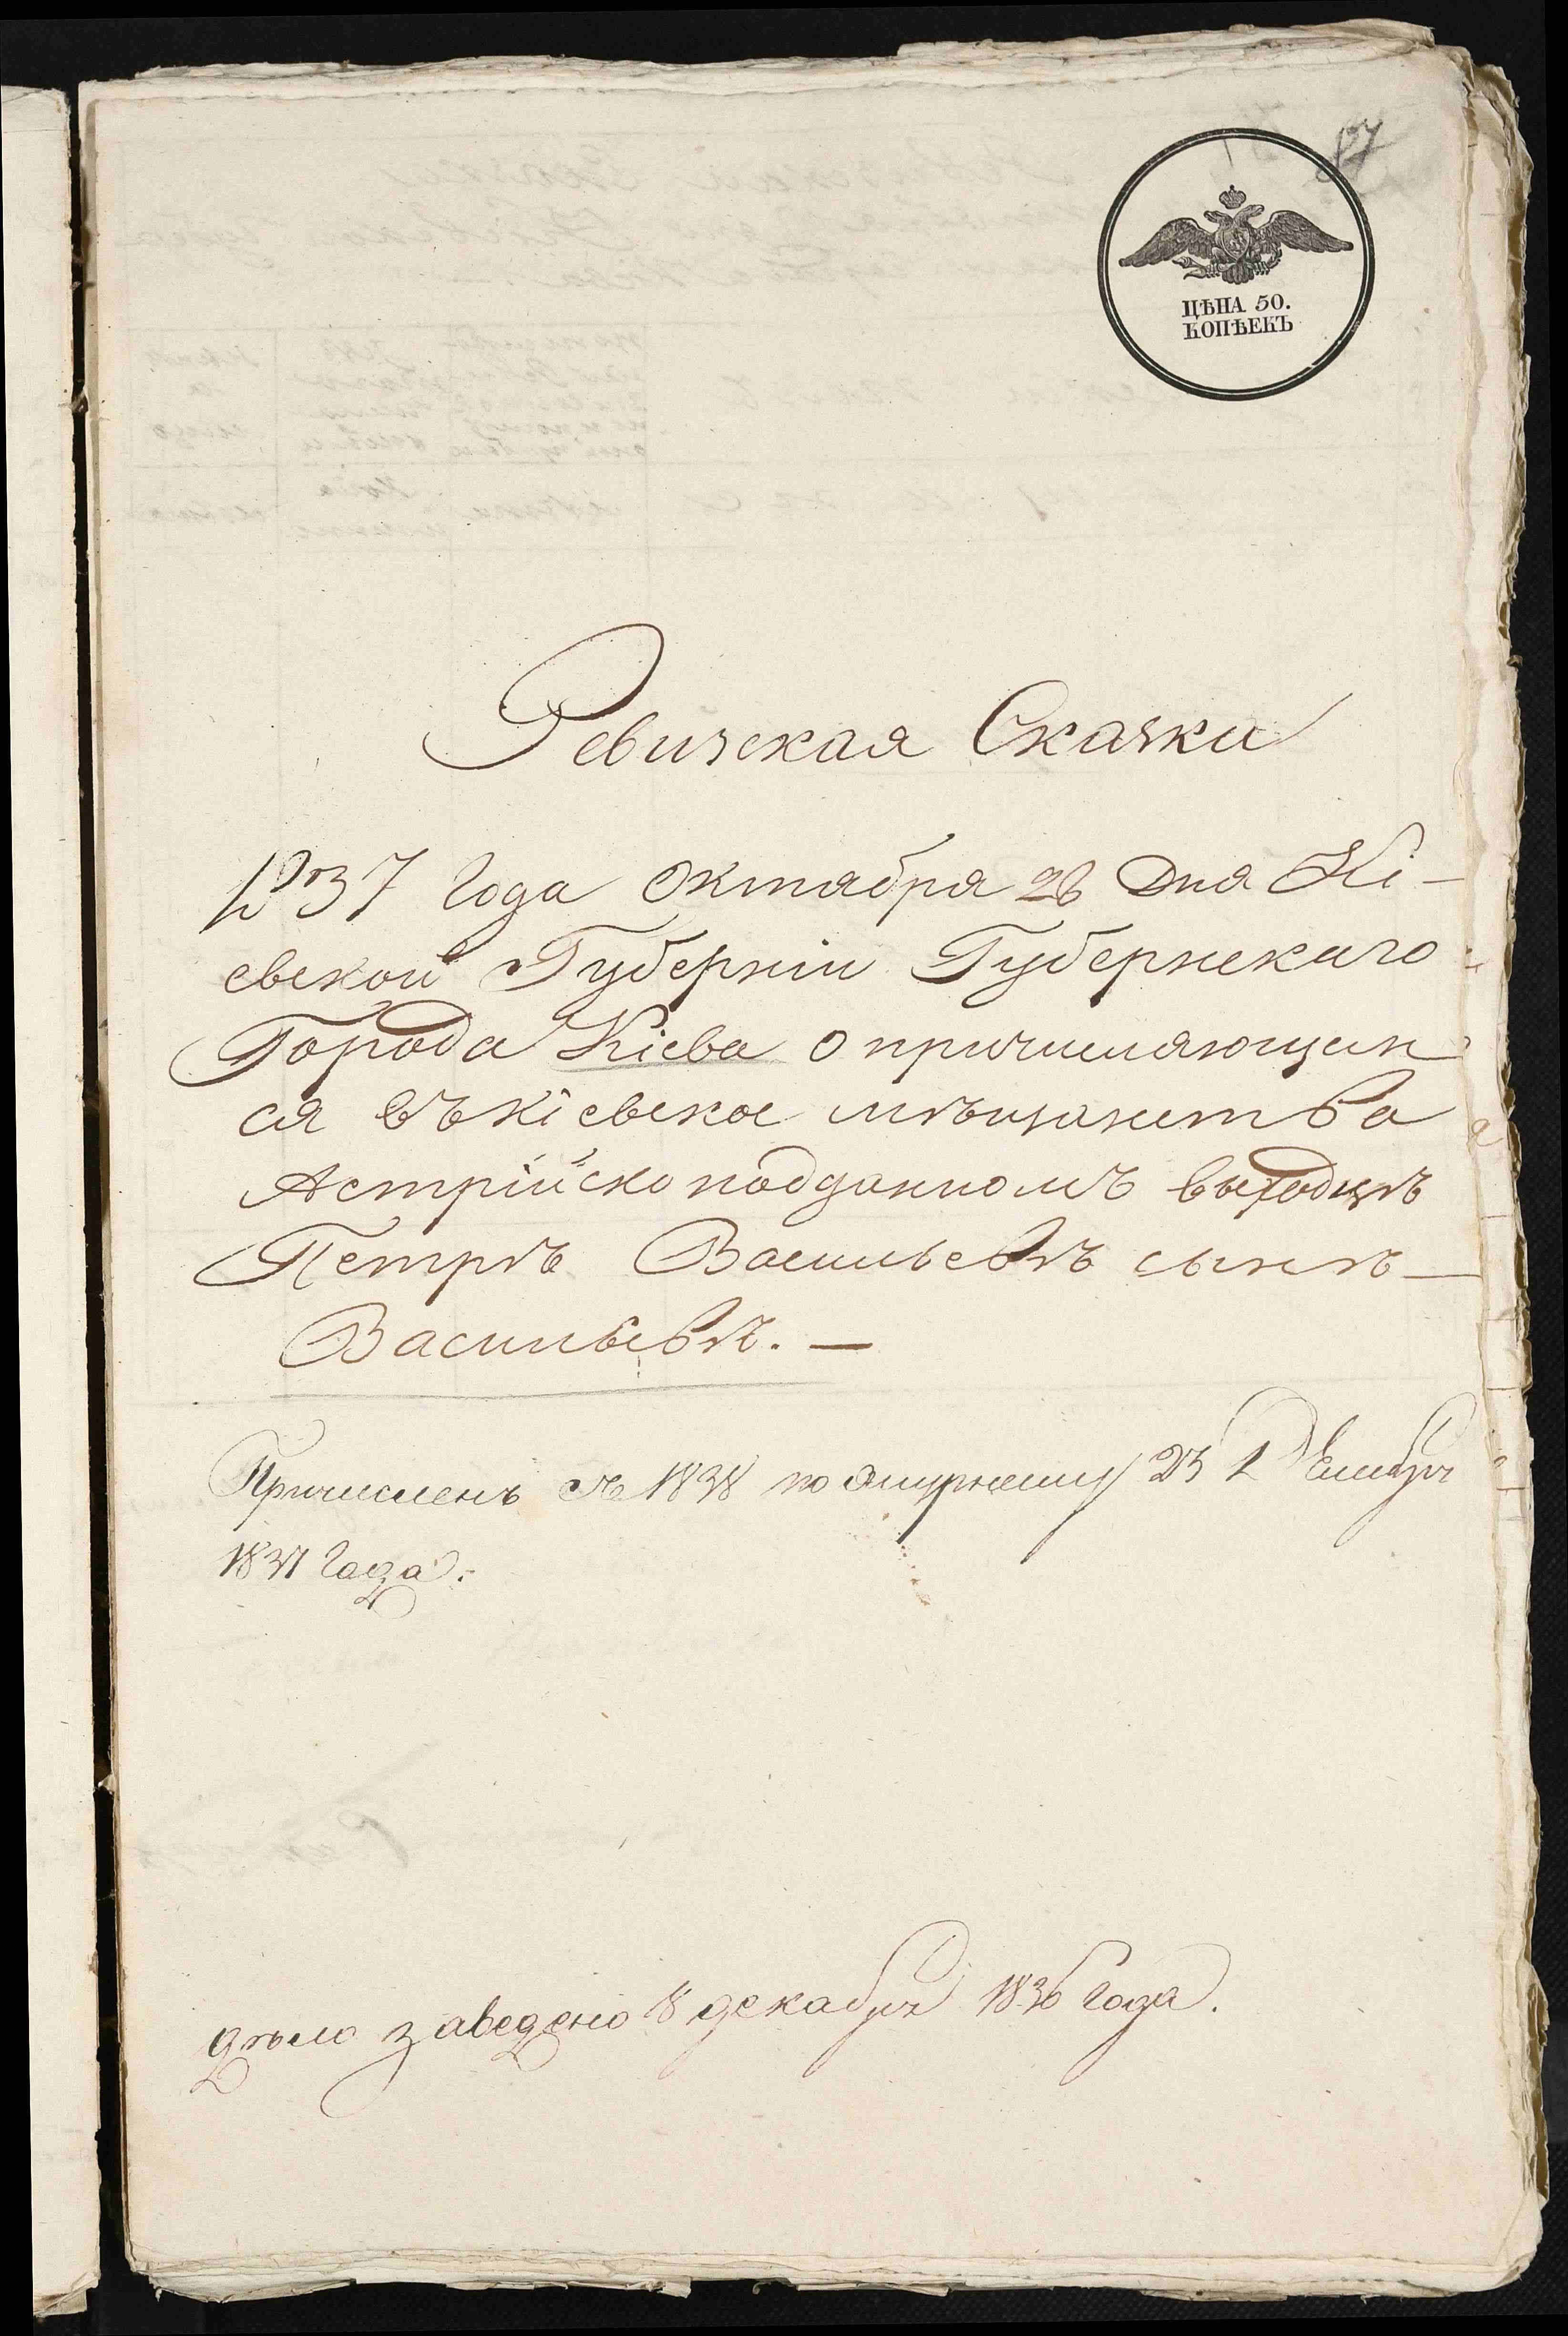 87
ЦѢНА 50.
КОПѢЕКЪ
Ревизская Сказка
1837 Года Октября 28 Дня Кі-
евской Губерніи Губернскаго
Города Кіева о причисляющем
ся въ кіевское мѣщанства
Австрійско подданномъ выходцѣ
Петрѣ Васильевѣ сынѣ
Васильевѣ. —
Причисленъ съ 1838 по 23
1837 Года.
дѣло заведено 18 декабря 1836 Года.